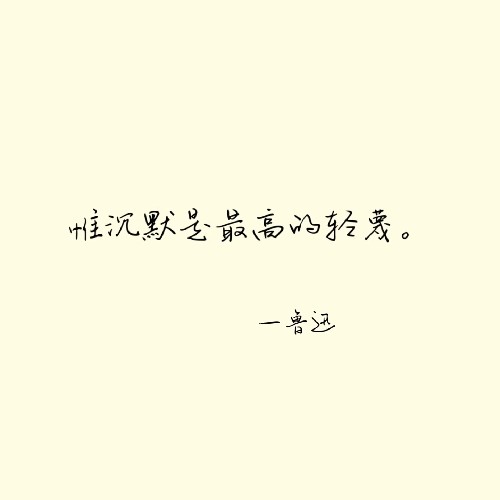 惟沉默是最高的轻蔑。
—鲁迅